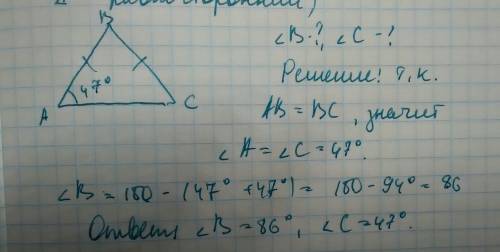 B
∠B-?, ∠C-?
47°
A
C
Решение: т.к.
AB = BC, значит
∠A = ∠C = 47°.
∠B = 180 - (47° + 47°) = 180 - 94° = 86
Ответ: ∠B = 86°, ∠C = 47°.